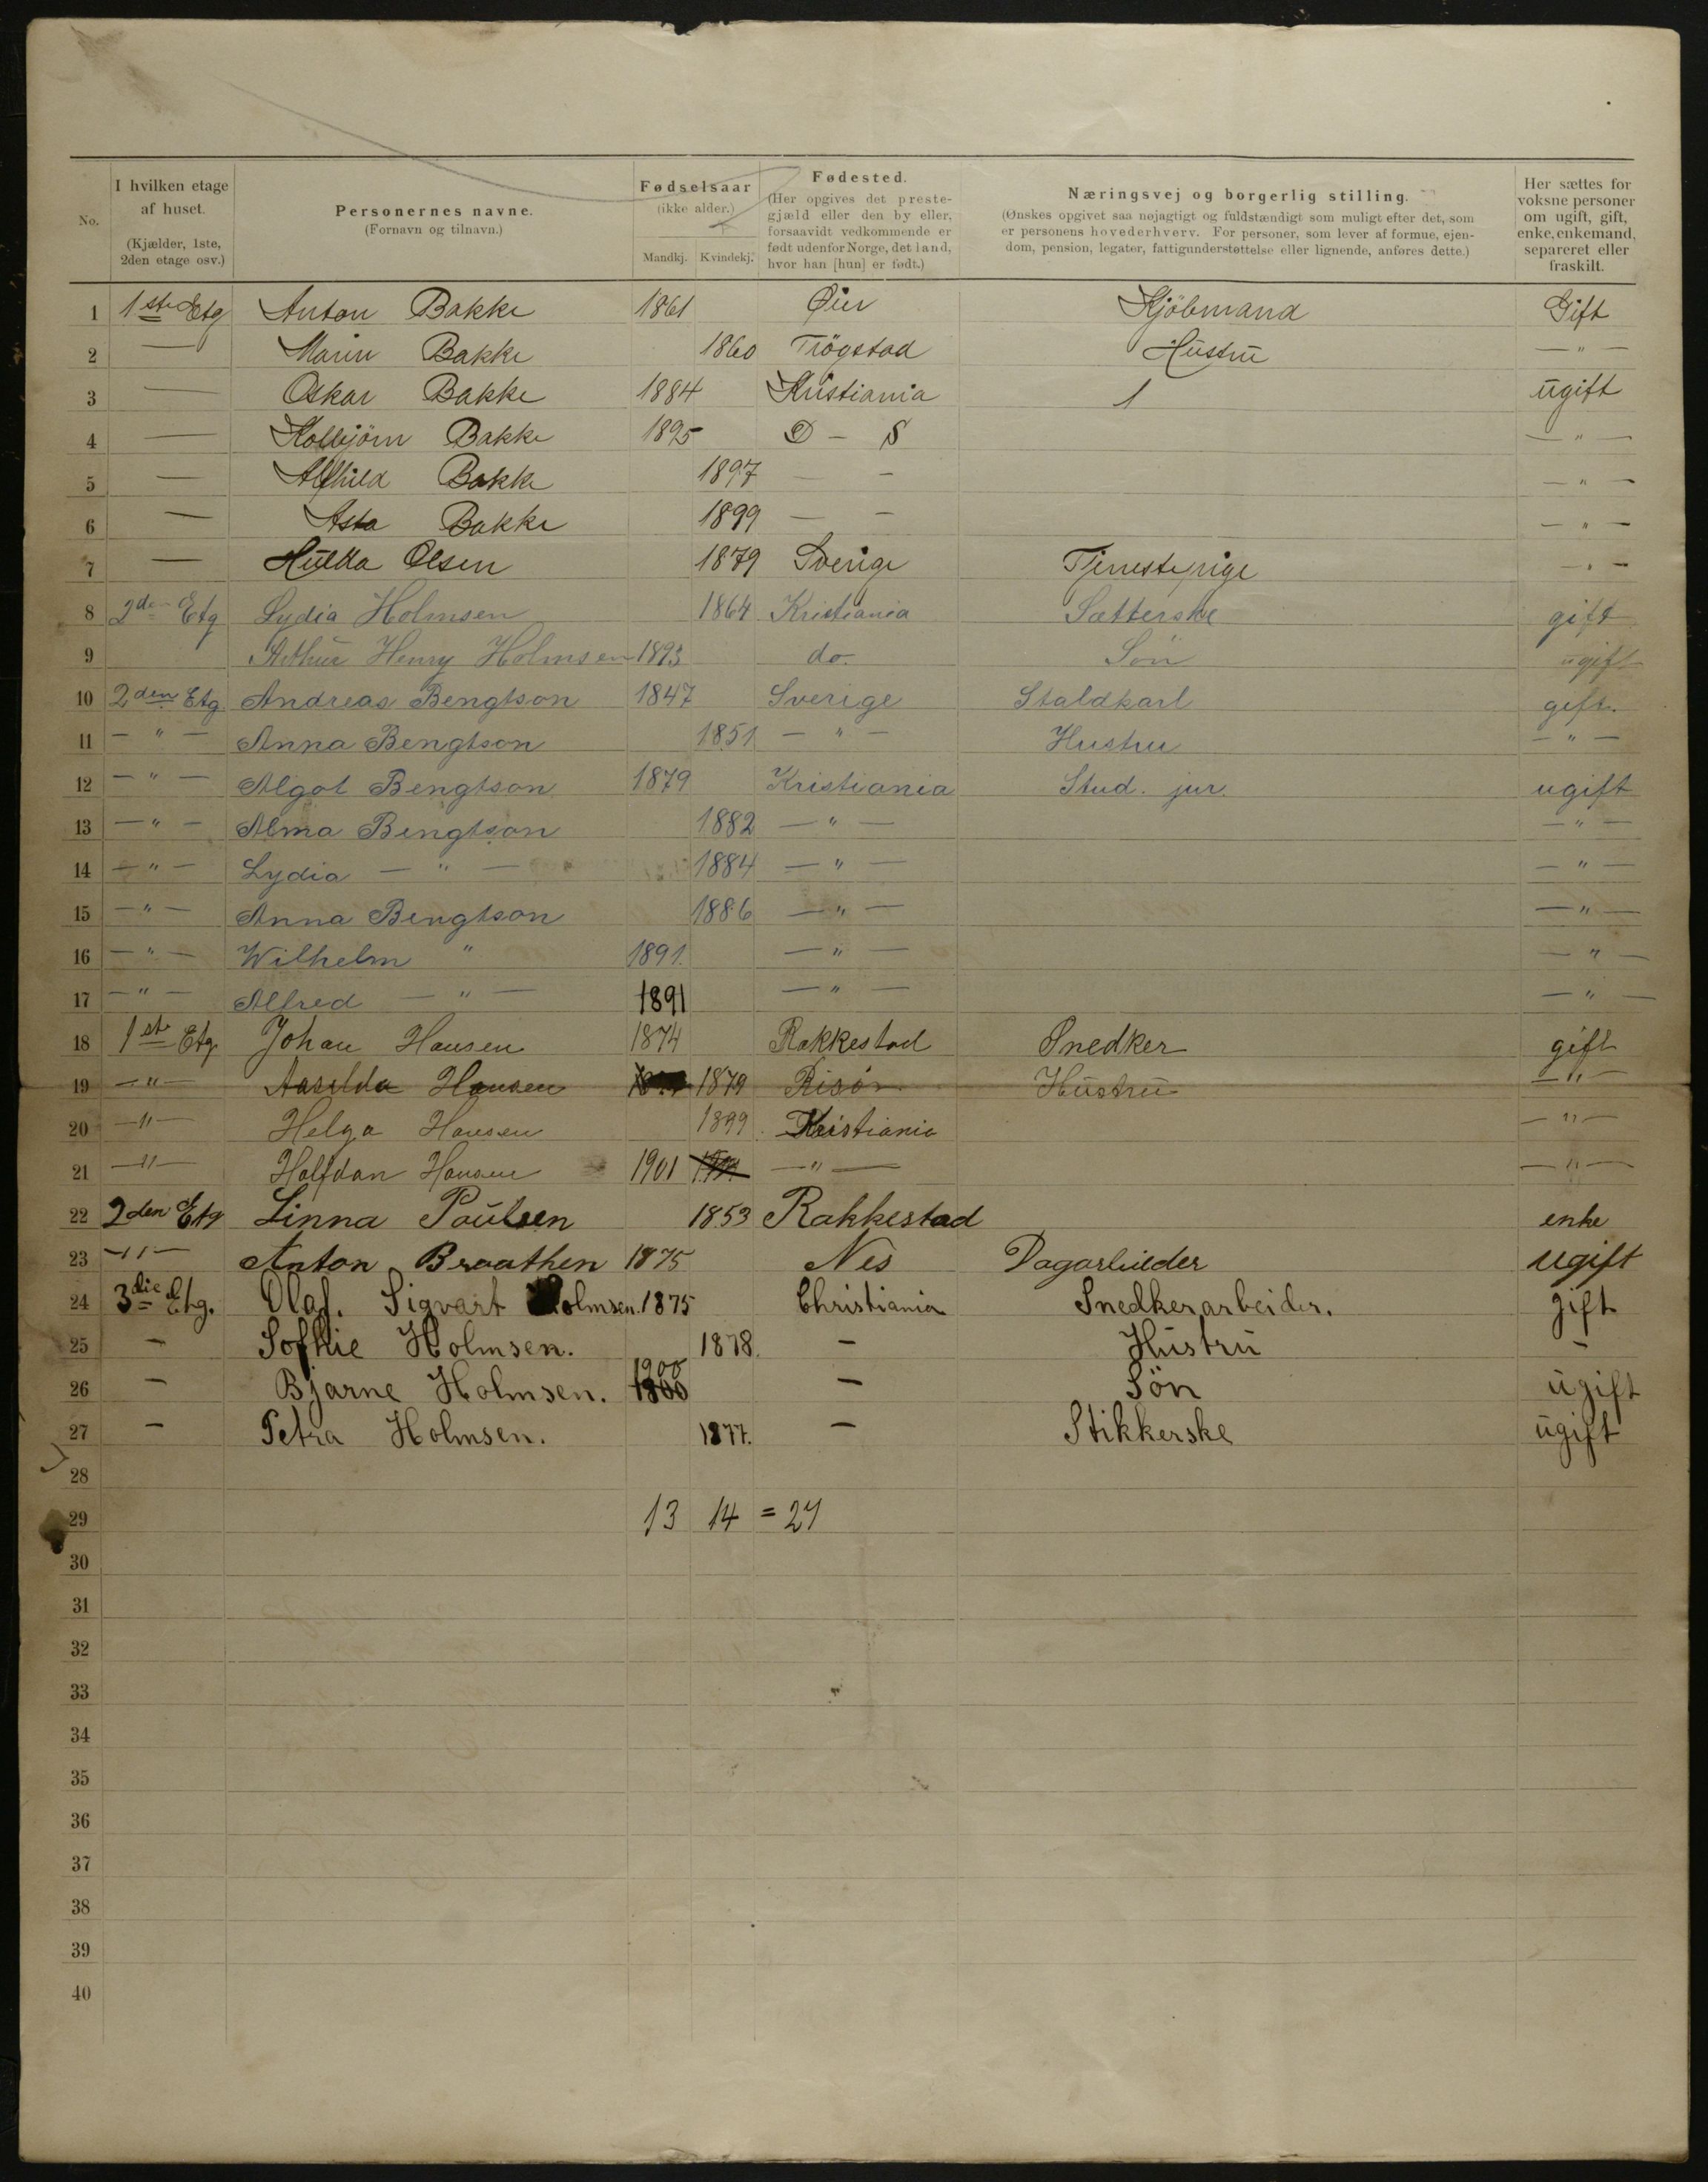 No.
I hvilken etage af huset. (Kjælder, 1ste, 2den etage osv.)
Personernes navne. (Fornavn og tilnavn.)
Fødselsaar (ikke alder.) Mandkj. Kvindekj.
Fødested. (Her opgives det prestegjæld eller den by eller, forsaavidt vedkommende er født udenfor Norge, det land, hvor han [hun] er født.)
Næringsvej og borgerlig stilling. (Ønskes opgivet saa nøjagtigt og fuldstændigt som muligt efter det, som er personens hovederhverv. For personer, som lever af formue, ejendom, pension, legater, fattigunderstøttelse eller lignende, anføres dette.)
Her sættes for voksne personer om ugift, gift, enke, enkemand, separeret eller fraskilt.
1 1ste Etg Anton Bakke 1861 Øier Kjöbmand Gift
2 — Marin Bakke 1860 Trögstad Hustru — " —
3 — Oskar Bakke 1884 Kristiania 1 ugift
4 — Kolbjörn Bakke 1895 D — S — " —
5 — Alfhild Bakke 1897 — — — " —
6 — Asta Bakke 1899 — — — " —
7 — Hulda Olsen 1879 Sverige Tjenestepige — " —
8 2den Etg Lydia Holmsen 1864 Kristiania Sætterske gift
9 Arthur Henry Holmsen 1893 do. Sön ugift
10 2den Etg Andreas Bengtson 1847 Sverige Staldkarl gift.
11 — " — Anna Bengtson 1851 — " — Hustru — " —
12 — " — Algot Bengtson 1879 Kristiania Stud. jur. ugift
13 — " — Alma Bengtson 1882 — " — — " —
14 — " — Lydia — " — 1884 — " — — " —
15 — " — Anna Bengtson 1886 — " — — " —
16 — " — Wilhelm " 1891. — " — — " —
17 — " — Alfred — " — 1891 — " — — " —
18 1ste Etg. Johan Hansen 1874 Rakkestad Snedker gift
19 — " — Aasilda Hansen 1879 Risör Hustru — " —
20 — " — Helga Hansen 1899. Kristiania — " —
21 — " — Halfdan Hansen 1901 — " — — " —
22 2den Etg Linna Poulsen 1853 Rakkestad enke
23 — " — Anton Braathen 1875 Nes Dagarbieder ugift
24 3die Etg. Olaf. Sigvart Holmsen. 1875 Christiania Snedkerarbeider. gift
25 — Sofhie Holmsen. 1878. — Hustru —
26 — Bjarne Holmsen. 1900 1800 — Sön ugift
27 — Petra Holmsen. 1877. — Stikkerske ugift
28
29 13 14 = 27
30
31
32
33
34
35
36
37
38
39
40